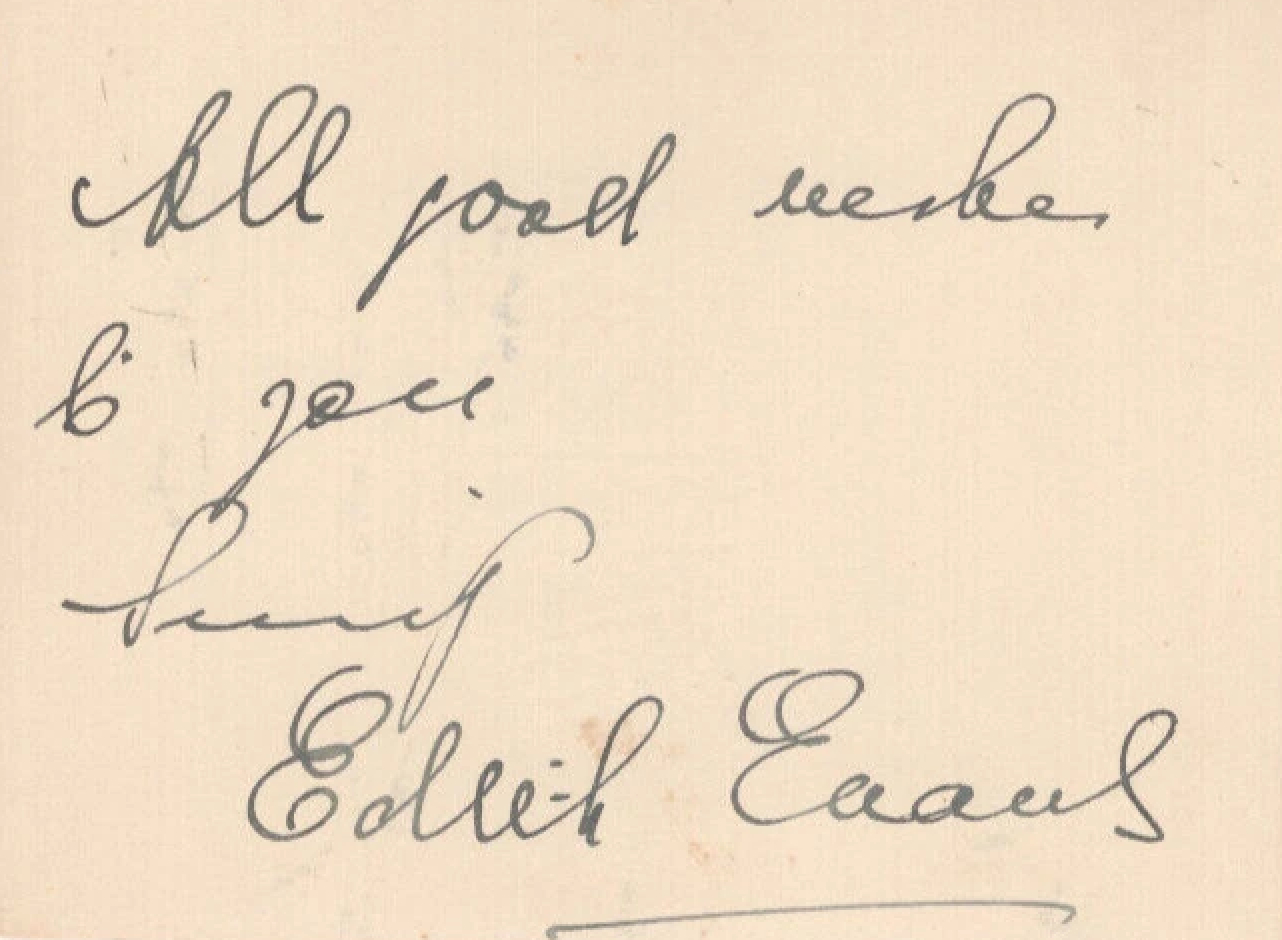 All good wishes
to you
Edith Evans